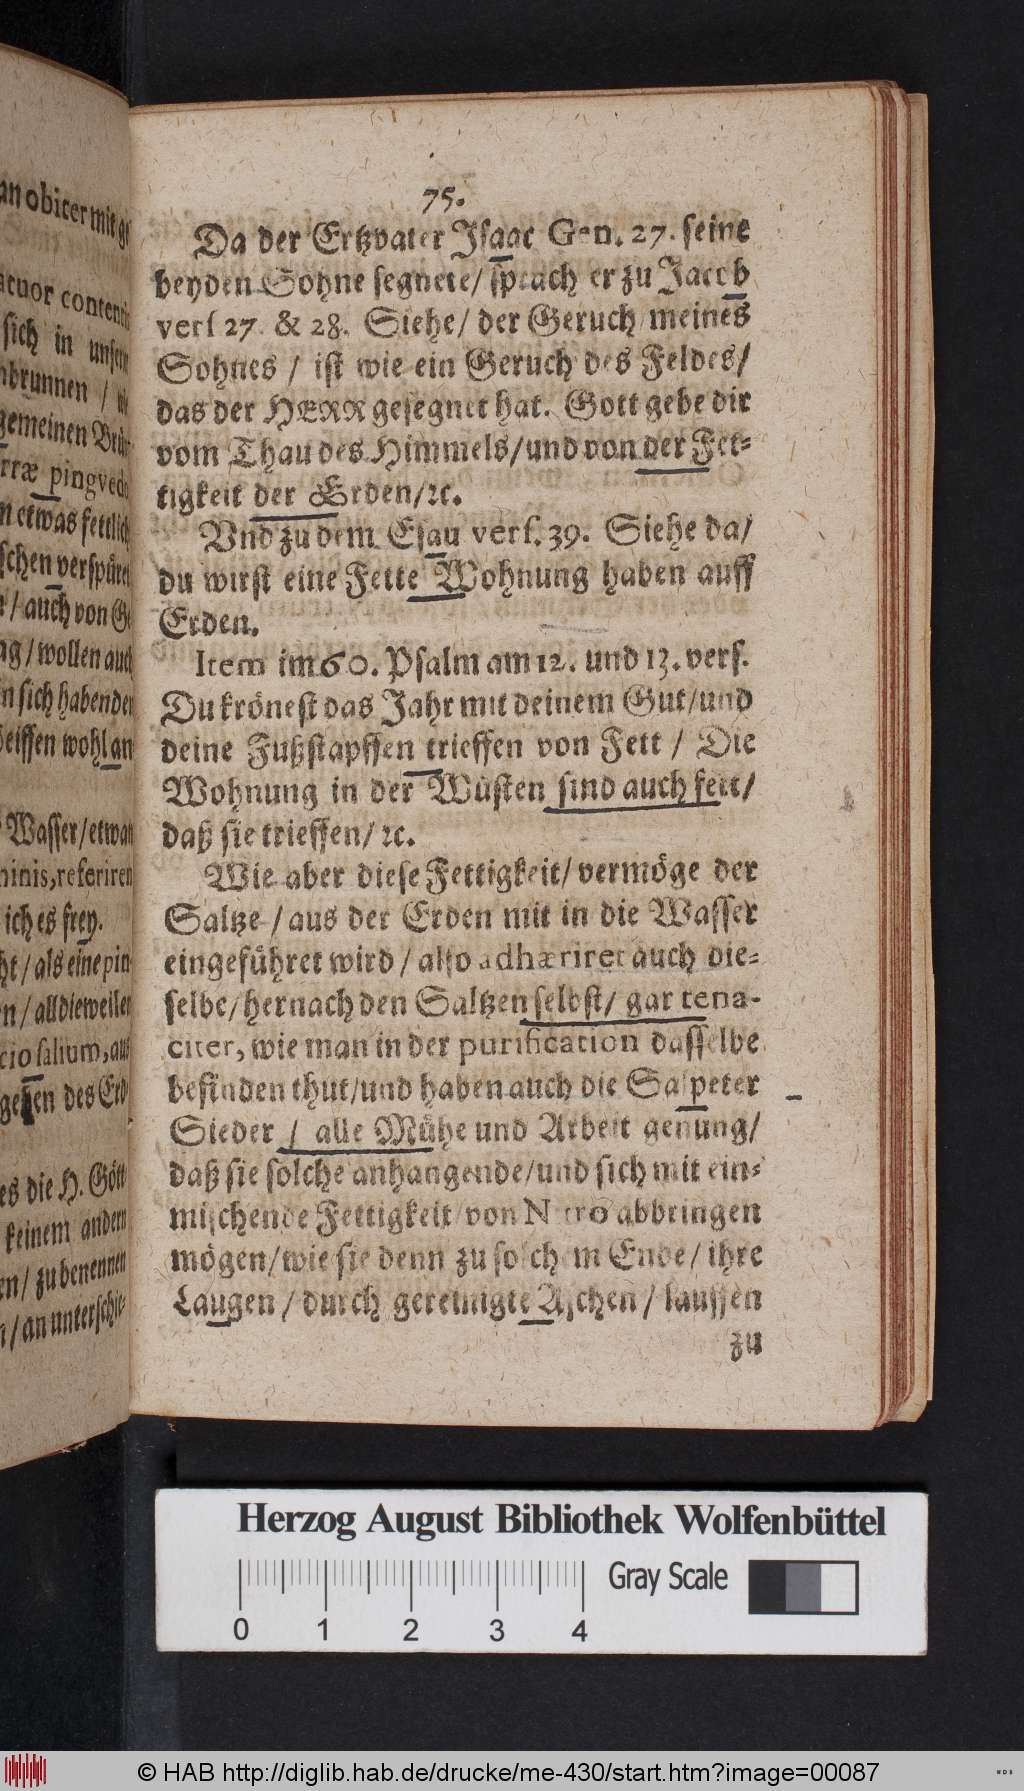 an obiter mit ge
atuor contenti
sich in unsern
nbrunnen / wie
gemeinen Brü
rræ pingvedo
n etwas fettlich
schen verspüret
/ auch von Ge
ng / wollen auch
n sich habenden
heissen wohl an
Wasser / etwan
ninis, referiren
ich es frey.
ht / als eine pin
en / alldieweilen
cio salium, aus
gehen des Erd
es die H. Gött
keinem andern
en / zu benennen
n / an unterschie-
75.
Da der Ertzvater Isaac Gen. 27. seine
beyden Sohne segnete / sprach er zu Jacob
vers 27. & 28. Siehe / der Geruch meines
Sohnes / ist wie ein Geruch des Feldes /
das der HERR gesegnet hat. Gott gebe dir
vom Thau des Himmels / und von der Fet-
tigkeit der Erden / ꝛc.
Und zu dem Esau vers. 39. Siehe da /
du wirst eine Fette Wohnung haben auff
Erden.
Item im 60. Psalm am 12. und 13. vers.
Du krönest das Jahr mit deinem Gut / und
deine Fußstapffen trieffen von Fett / Die
Wohnung in der Wüsten sind auch fett /
daß sie trieffen / ꝛc.
Wie aber diese Fettigkeit / vermöge der
Saltze / aus der Erden mit in die Wasser
eingeführet wird / also adhæriret auch die-
selbe / hernach den Saltzen selbst / gar tena-
citer, wie man in der purification dasselbe
befinden thut / und haben auch die Salpeter
Sieder / alle Mühe und Arbeit genung /
daß sie solche anhangende / und sich mit ein-
mischende Fettigkeit von Nitro abbringen
mögen / wie sie denn zu solchem Ende / ihre
Laugen / durch gereinigte Aschen / lauffen
zu
Herzog August Bibliothek Wolfenbüttel
Gray Scale
0 1 2 3 4
© HAB http://diglib.hab.de/drucke/me-430/start.htm?image=00087